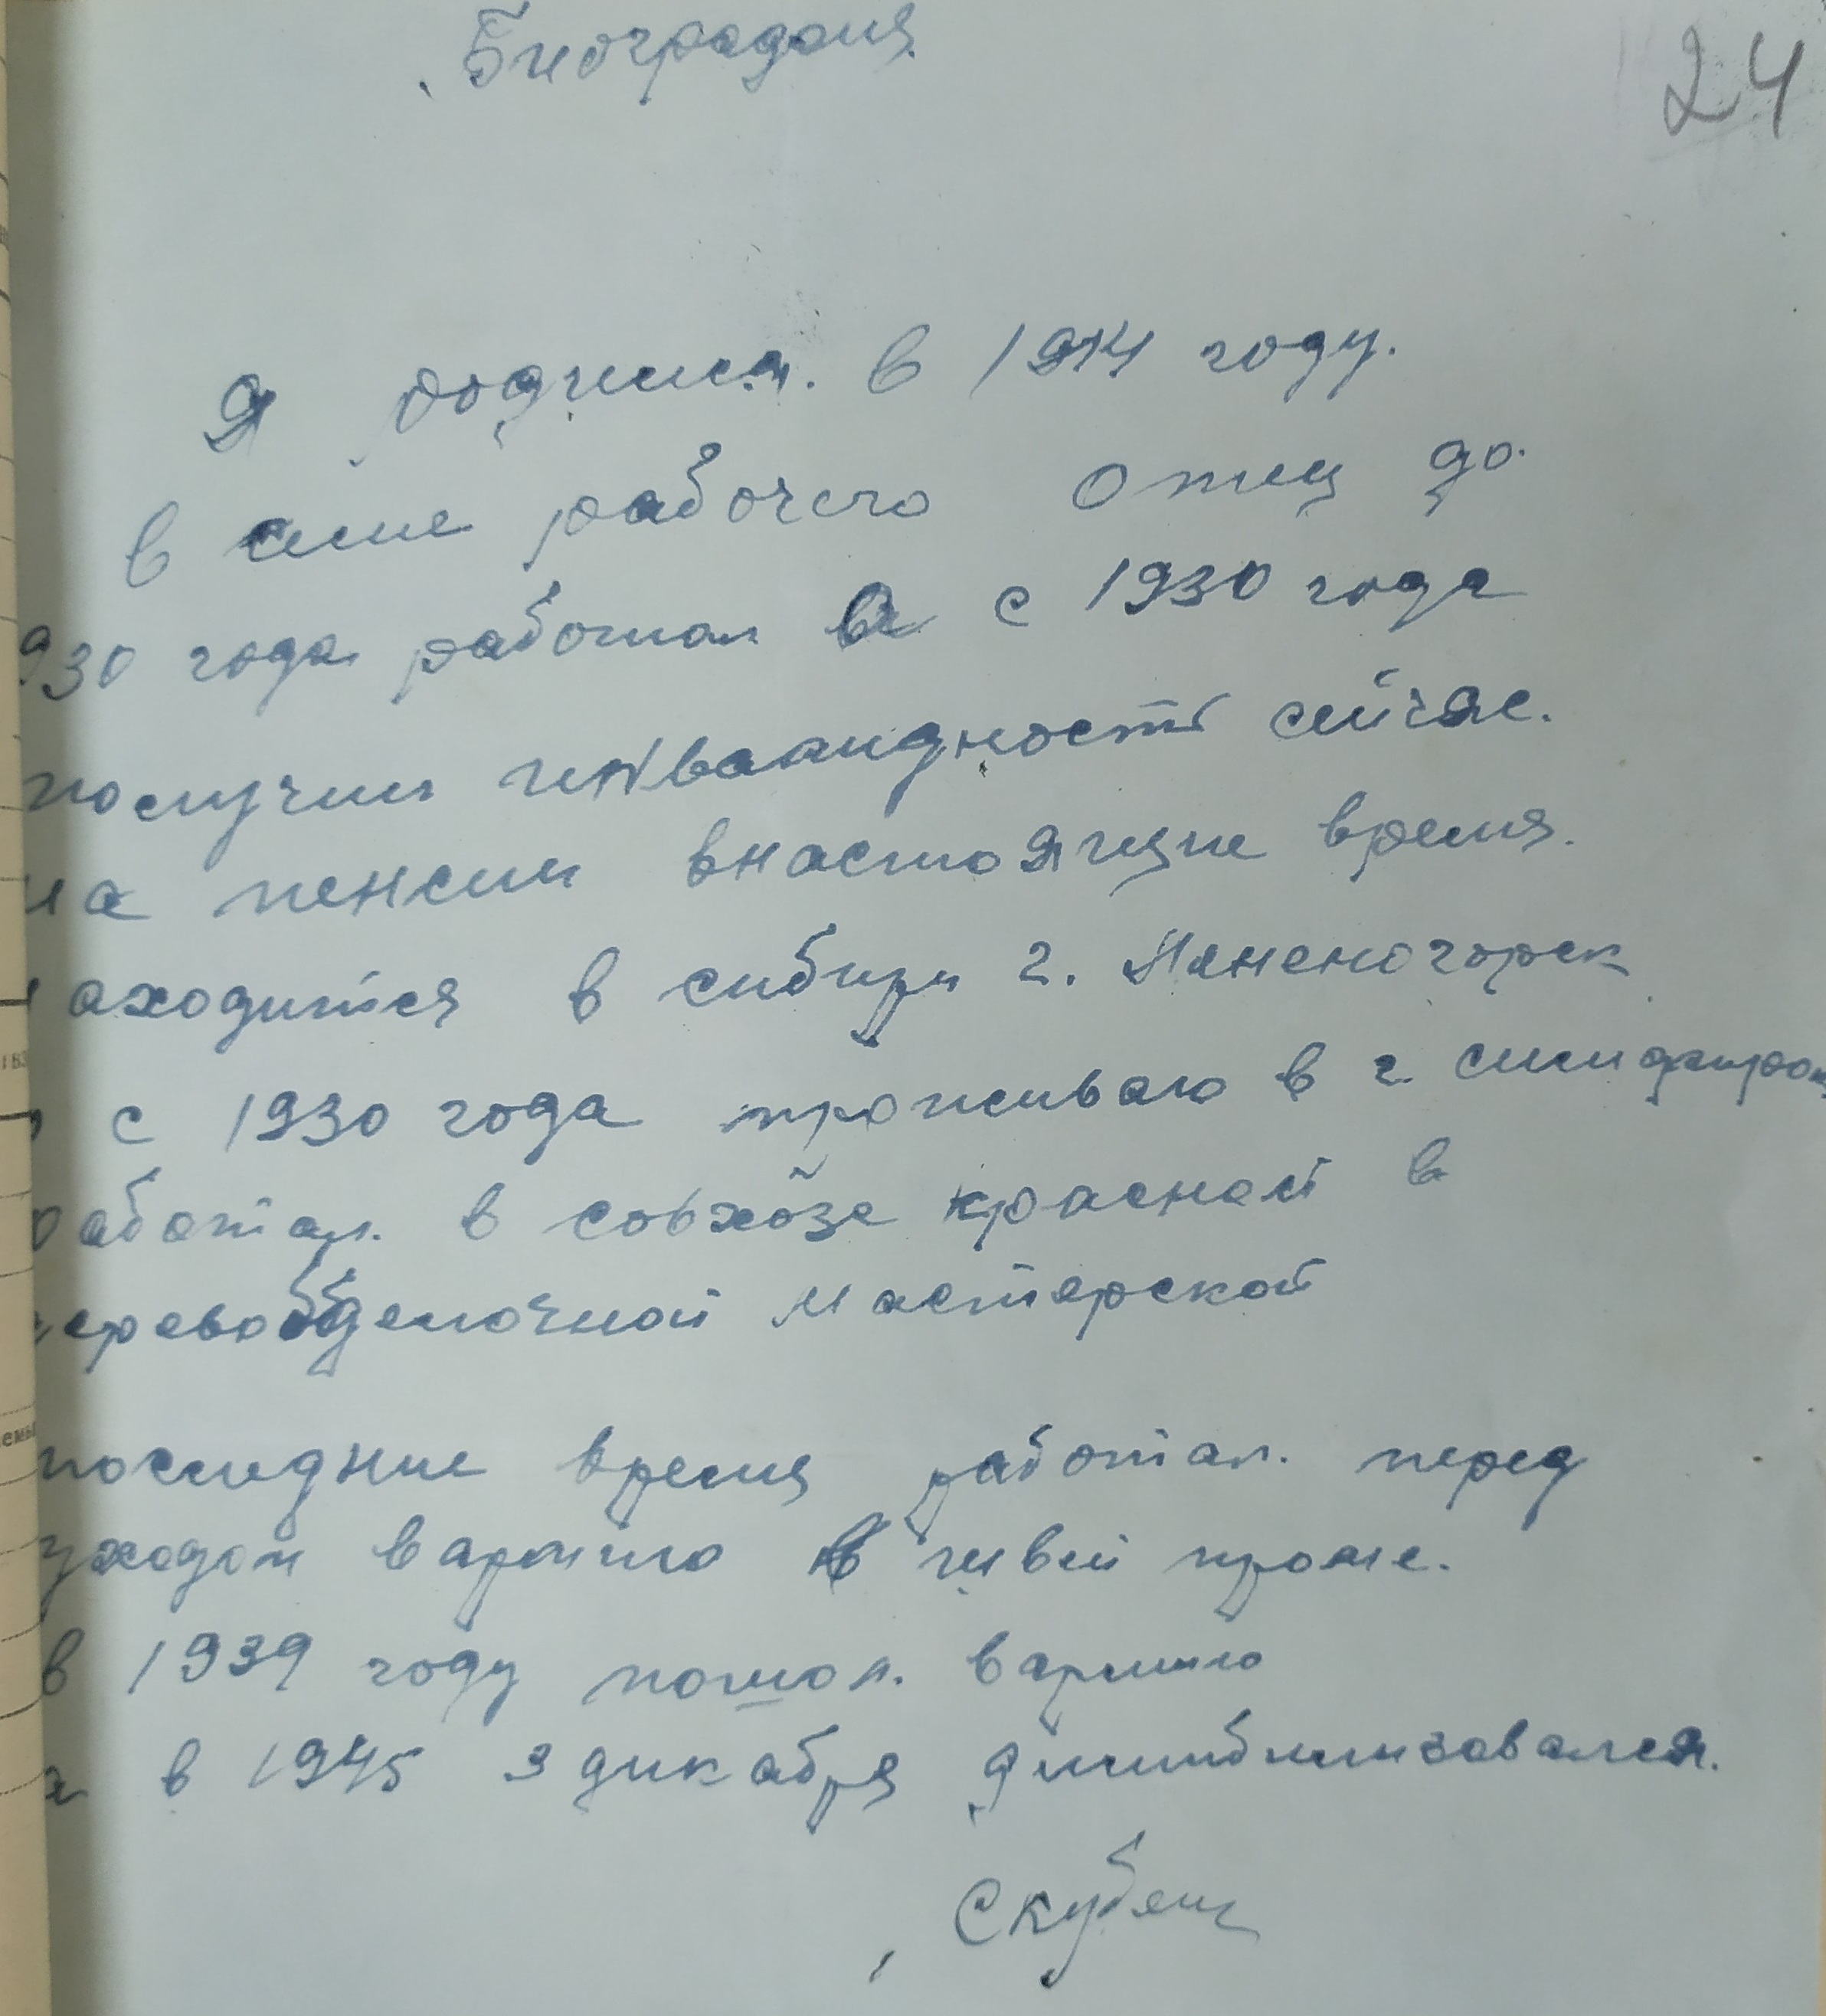 Биография
24
Я родился. в 1914 году.
В семе рабочего Отец до.
930 года работал а с 1930 года
получил инвалидность сейчас.
на пенсии внастоящие время.
находится в сибири г. Лененогорск
с 1930 года проживаю в г. симфироп
работал. в совхозе красной в
деревообделочной мастерской
последние время работал. перед
уходом вармию в швей проме.
в 1939 году пошол. вармию
а в 1945 3 дикабря димибилизовался.
Скубаш